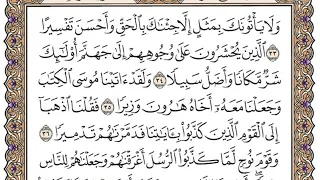 وَلَا يَأْتُونَكَ بِمَثَلٍ إِلَّا جِئْنَٰكَ بِٱلْحَقِّ وَأَحْسَنَ تَفْسِيرًا
٣٣ ٱلَّذِينَ يُحْشَرُونَ عَلَىٰ وُجُوهِهِمْ إِلَىٰ جَهَنَّمَ أُو۟لَٰٓئِكَ
شَرٌّ مَّكَانًا وَأَضَلُّ سَبِيلًا ٣٤ وَلَقَدْ ءَاتَيْنَا مُوسَى ٱلْكِتَٰبَ
وَجَعَلْنَا مَعَهُۥٓ أَخَاهُ هَٰرُونَ وَزِيرًا ٣٥ فَقُلْنَا ٱذْهَبَآ
إِلَى ٱلْقَوْمِ ٱلَّذِينَ كَذَّبُوا۟ بِـَٔايَٰتِنَا فَدَمَّرْنَٰهُمْ تَدْمِيرًا ٣٦
وَقَوْمَ نُوحٍ لَّمَّا كَذَّبُوا۟ ٱلرُّسُلَ أَغْرَقْنَٰهُمْ وَجَعَلْنَٰهُمْ لِلنَّاسِ